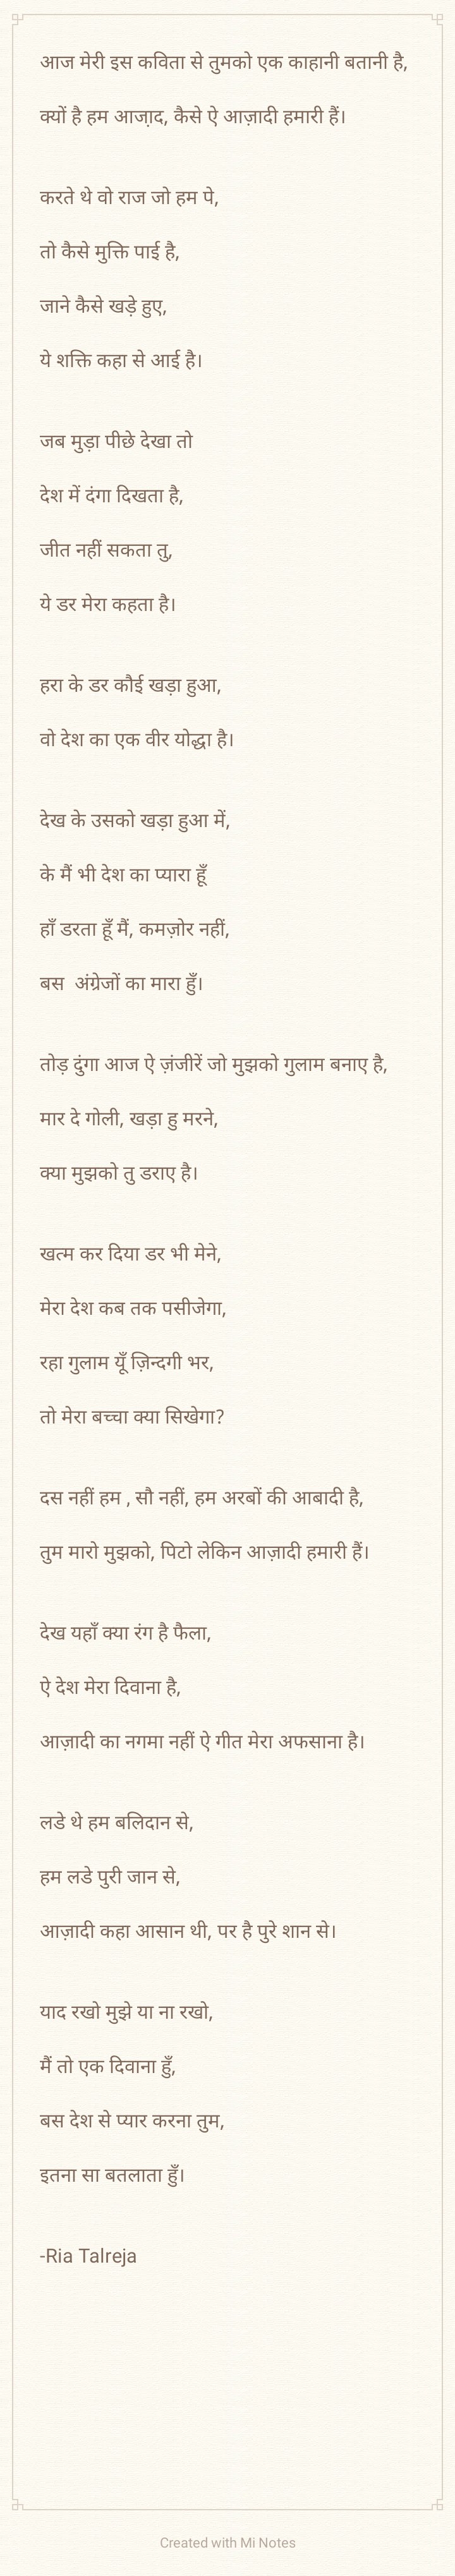 आज मेरी इस कविता से तुमको एक काहानी बतानी है,
क्यों है हम आजा़द, कैसे ऐ आज़ादी हमारी हैं।
करते थे वो राज जो हम पे,
तो कैसे मुक्ति पाई है,
जाने कैसे खड़े हुए,
ये शक्ति कहा से आई है।
जब मुड़ा पीछे देखा तो
देश में दंगा दिखता है,
जीत नहीं सकता तु,
ये डर मेरा कहता है।
हरा के डर कौई खड़ा हुआ,
वो देश का एक वीर योद्धा है।
देख के उसको खड़ा हुआ में,
के मैं भी देश का प्यारा हूँ
हाँ डरता हूँ मैं, कमज़ोर नहीं,
बस  अंग्रेजों का मारा हुँ।
तोड़ दुंगा आज ऐ ज़ंजीरें जो मुझको गुलाम बनाए है,
मार दे गोली, खड़ा हु मरने,
क्या मुझको तु डराए है।
खत्म कर दिया डर भी मेने,
मेरा देश कब तक पसीजेगा,
रहा गुलाम यूँ ज़िन्दगी भर,
तो मेरा बच्चा क्या सिखेगा?
दस नहीं हम , सौ नहीं, हम अरबों की आबादी है,
तुम मारो मुझको, पिटो लेकिन आज़ादी हमारी हैं।
देख यहाँ क्या रंग है फैला,
ऐ देश मेरा दिवाना है,
आज़ादी का नगमा नहीं ऐ गीत मेरा अफसाना है।
लडे थे हम बलिदान से,
हम लडे पुरी जान से,
आज़ादी कहा आसान थी, पर है पुरे शान से।
याद रखो मुझे या ना रखो,
मैं तो एक दिवाना हुँ,
बस देश से प्यार करना तुम,
इतना सा बतलाता हुँ।
-Ria Talreja
Created with Mi Notes